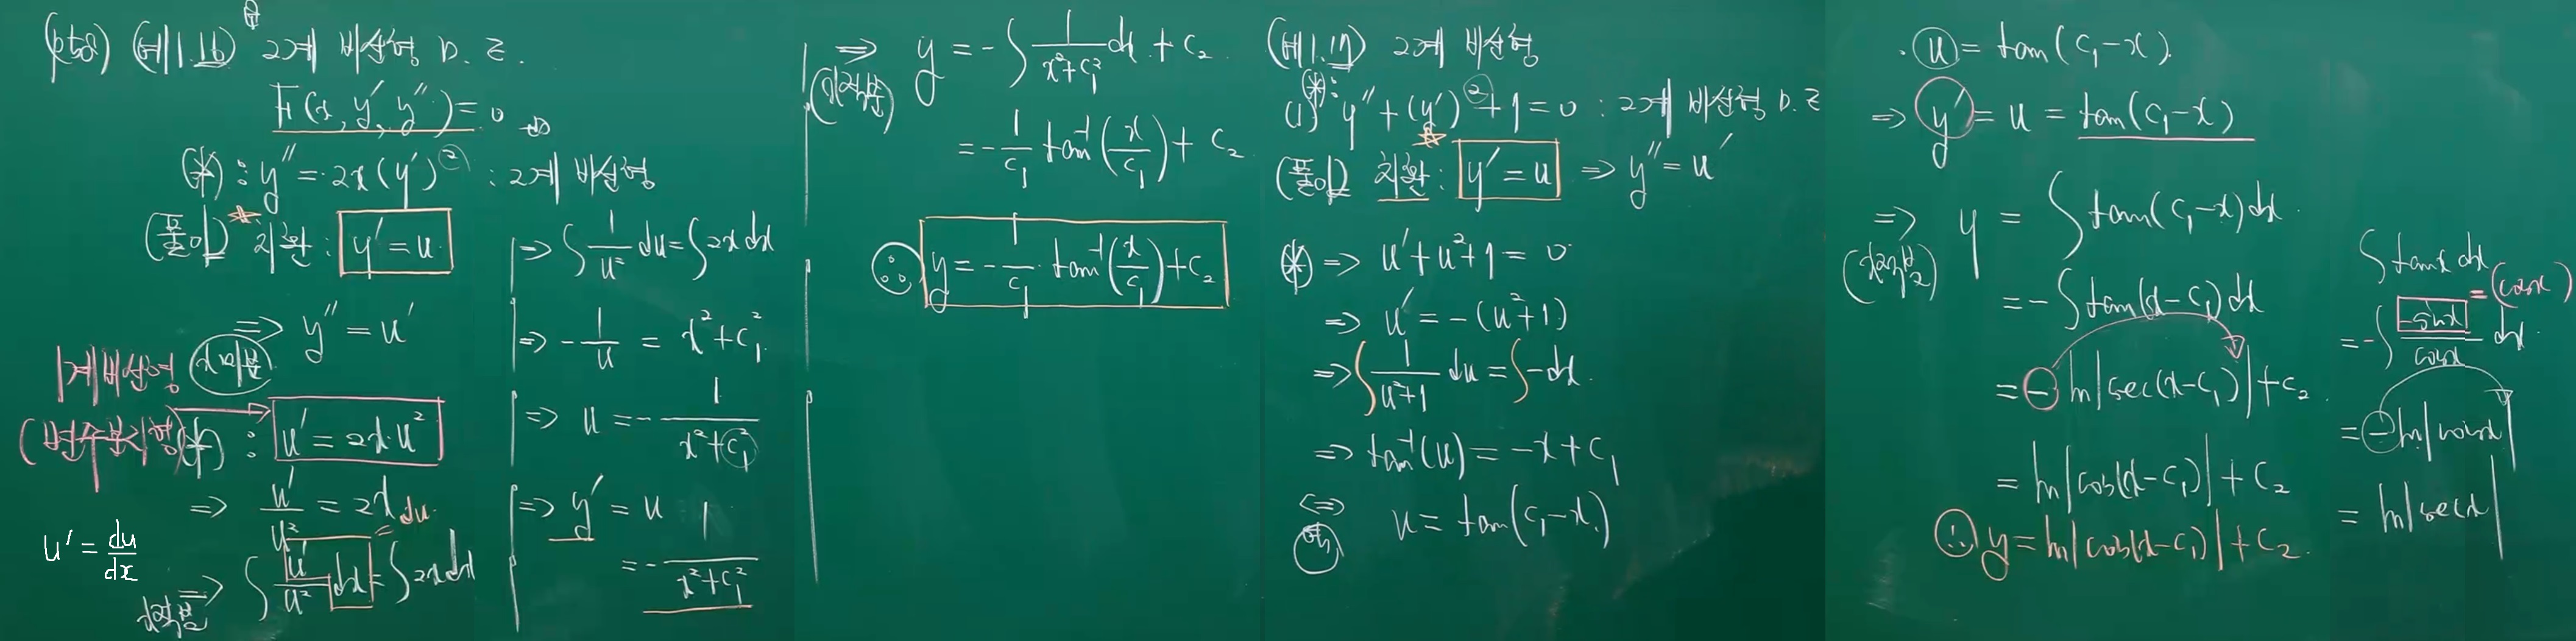 (예1.16) 2계 비선형 D.E.
F(x, y', y'') = 0
(*) : y'' = 2x(y')² : 2계 비선형
(풀이) 치환 : y' = u
⇒ y'' = u'
1계 비선형
(변수분리형)
(*) : u' = 2x·u²
⇒ u'/u² = 2x
du
u' = du/dx
⇒ ∫ u'/u² dx = ∫ 2x dx
적분
⇒ ∫ 1/u² du = ∫ 2x dx
⇒ -1/u = x² + c₁²
⇒ u = - 1/(x² + c₁²)
⇒ y' = u
= - 1/(x² + c₁²)
⇒ y = -∫ 1/(x² + c₁²) dx + c₂
= - 1/c₁ tan⁻¹(x/c₁) + c₂
∴ y = - 1/c₁ · tan⁻¹(x/c₁) + c₂
(예1.17) 2계 비선형
(*):
(1) y'' + (y')² + 1 = 0 : 2계 비선형 D.E
(풀이) 치환 : y' = u ⇒ y'' = u'
(*) ⇒ u' + u² + 1 = 0
⇒ u' = -(u² + 1)
⇒ ∫ 1/(u² + 1) du = ∫ -dx.
⇒ tan⁻¹(u) = -x + c₁
⇔ u = tan(c₁ - x)
역
· u = tan(c₁ - x).
⇒ y' = u = tan(c₁ - x)
⇒ y = ∫ tan(c₁ - x) dx.
(적분)
= -∫ tan(x - c₁) dx
= - ln|sec(x - c₁)| + c₂
= ln|cos(x - c₁)| + c₂
∴ y = ln|cos(x - c₁)| + c₂.
∫ tanx dx
= (cosx)'
= -∫ -sinx/cosx dx
= - ln|cosx|
= ln|secx|